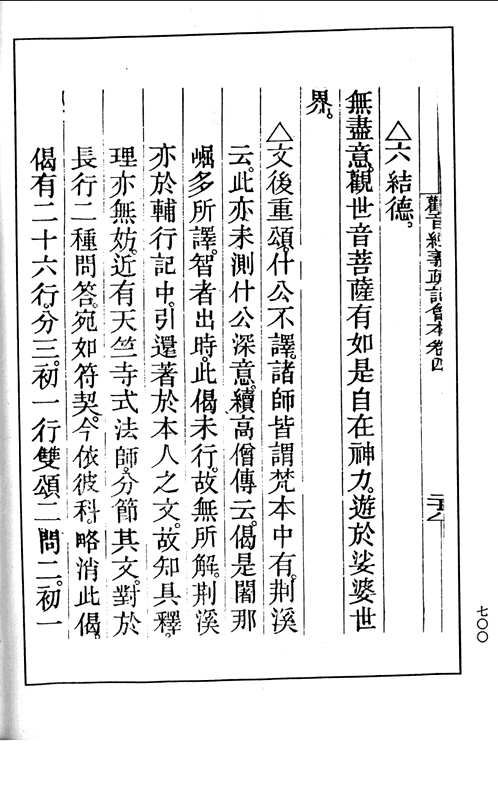 觀音經義疏記會本卷四
七〇〇
△六結德。
無盡意。觀世音菩薩有如是自在神力。遊於娑婆世
界。
△文後重頌。什公不譯。諸師皆謂梵本中有。荆溪
云。此亦未測什公深意。續高僧傳云。偈是闍那
崛多所譯。智者出時。此偈未行。故無所解。荆溪
亦於輔行記中。引還著於本人之文。故知具釋。
理亦無妨。近有天竺寺式法師。分節其文。對於
長行二種問答。宛如符契。今依彼科。略消此偈。
偈有二十六行。分三。初一行雙頌二問二。初一